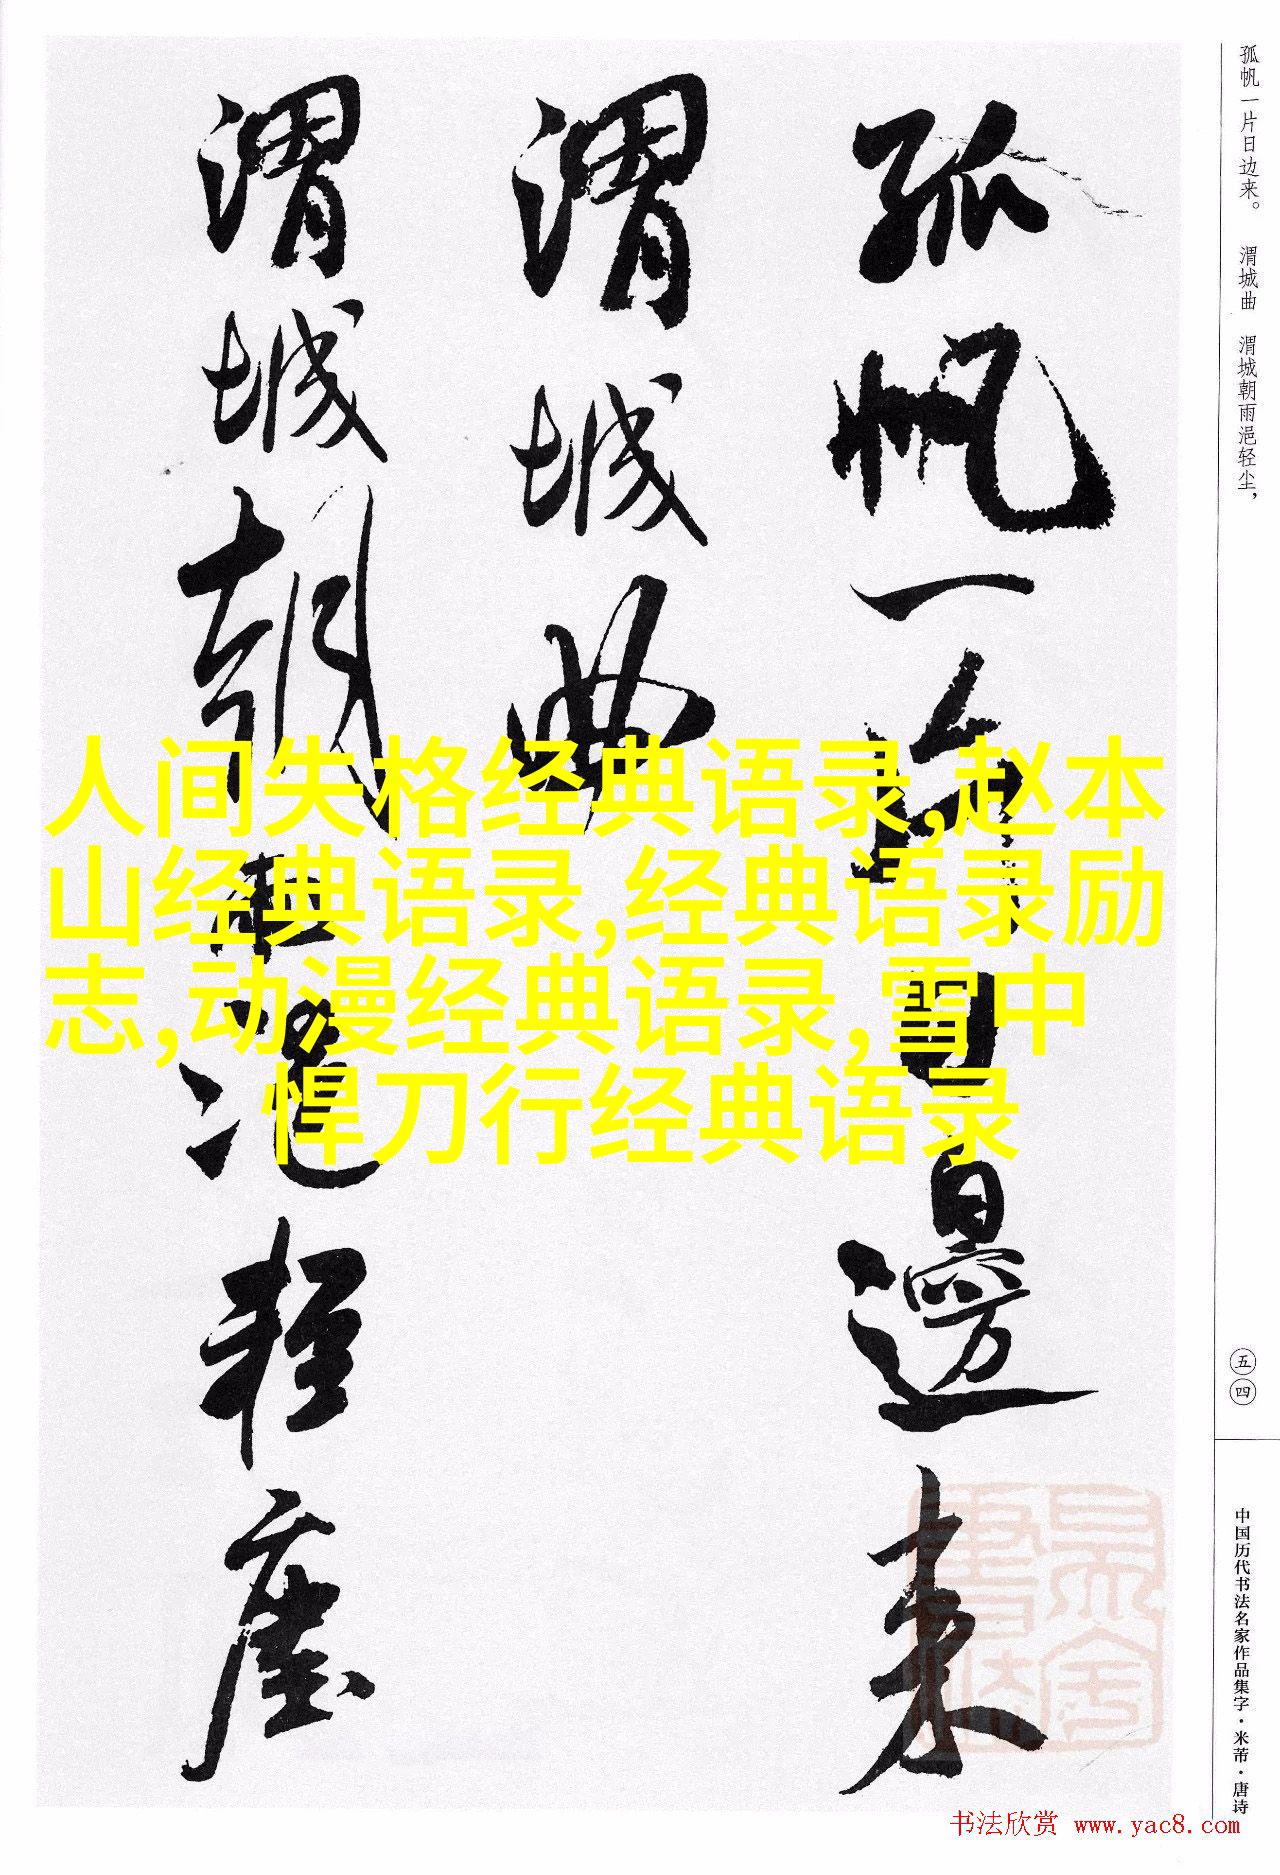 孤帆一片日边来。 渭城曲 渭城朝雨浥轻尘，
孤帆一片日邊来
渭城曲
渭城朝雨浥轻塵
人间失格经典语录,赵本
山经典语录,经典语录励
志,动漫经典语录,雪中
悍刀行经典语录
五四
中国历代书法名家作品集字·米芾·唐诗
书法欣赏 www.yac8.com